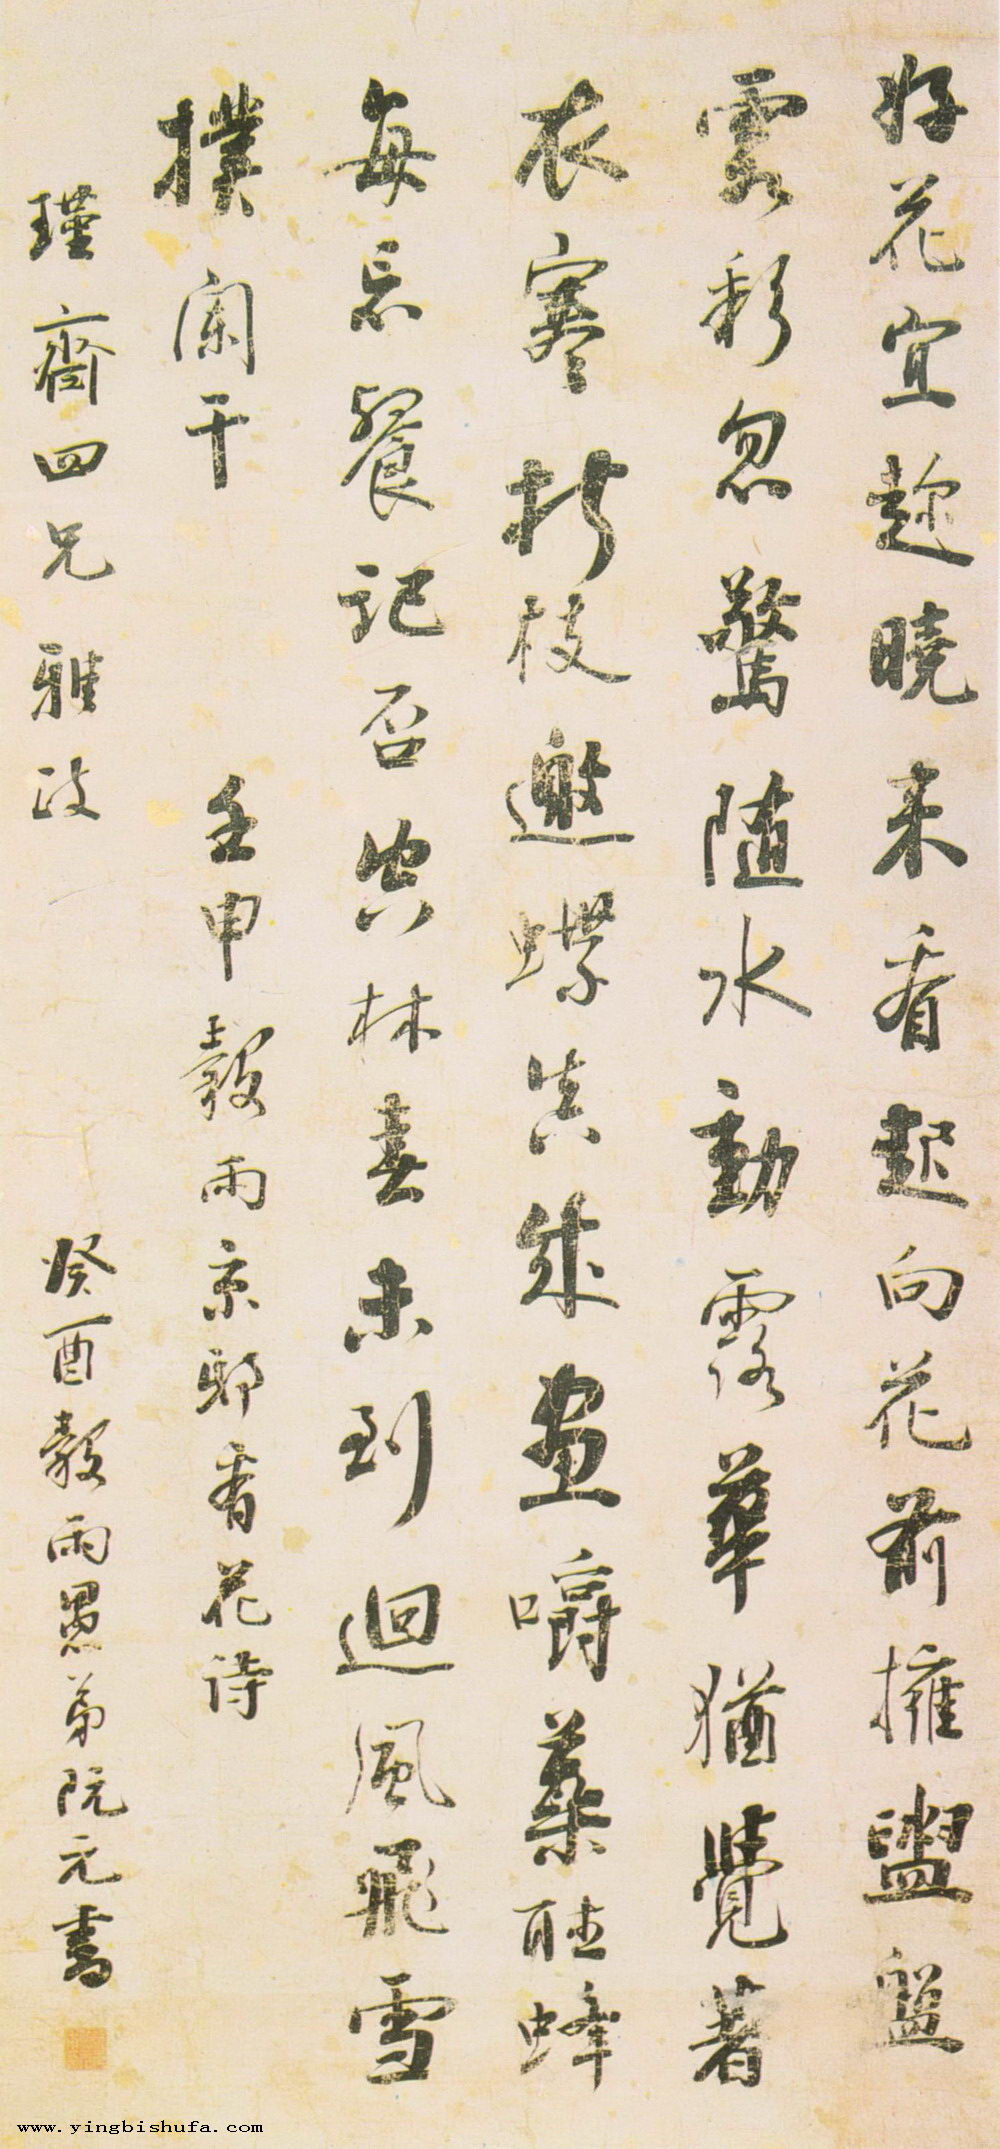 好花宜趂曉来看起向花前擁盥盤
雲彩忽驚隨水動露華猶覺著
衣寒折枝邀蝶真成畫嚼蘂聽蜂
每忘餐記否空林春未到迴風飛雪
撲闌干
壬申穀雨京邸看花詩
瑾齋四兄雅政
癸酉穀雨愚弟阮元書
www.yingbishufa.com